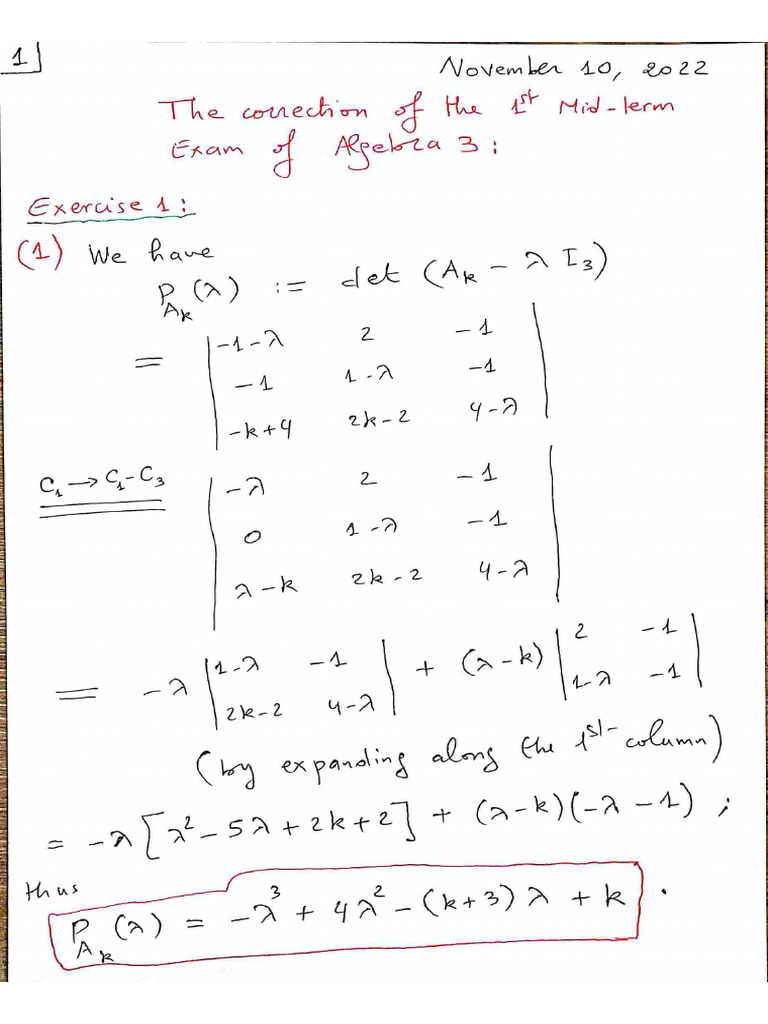 1
November 10, 2022
The correction of the 1st Mid-term
Exam of Algebra 3:
Exercise 1:
(1) We have
P_{A_k}(λ) := det (A_k − λ I_3)
= | −1−λ 2 −1 |
| −1 1−λ −1 |
| −k+4 2k−2 4−λ |
C_1 → C_1−C_3 | −λ 2 −1 |
| 0 1−λ −1 |
| λ−k 2k−2 4−λ |
= −λ | 1−λ −1 | + (λ−k) | 2 −1 |
| 2k−2 4−λ | | 1−λ −1 |
(by expanding along the 1st-column)
= −λ[λ² − 5λ + 2k + 2] + (λ−k)(−λ−1) ;
thus
P_{A_k}(λ) = −λ³ + 4λ² − (k+3)λ + k .